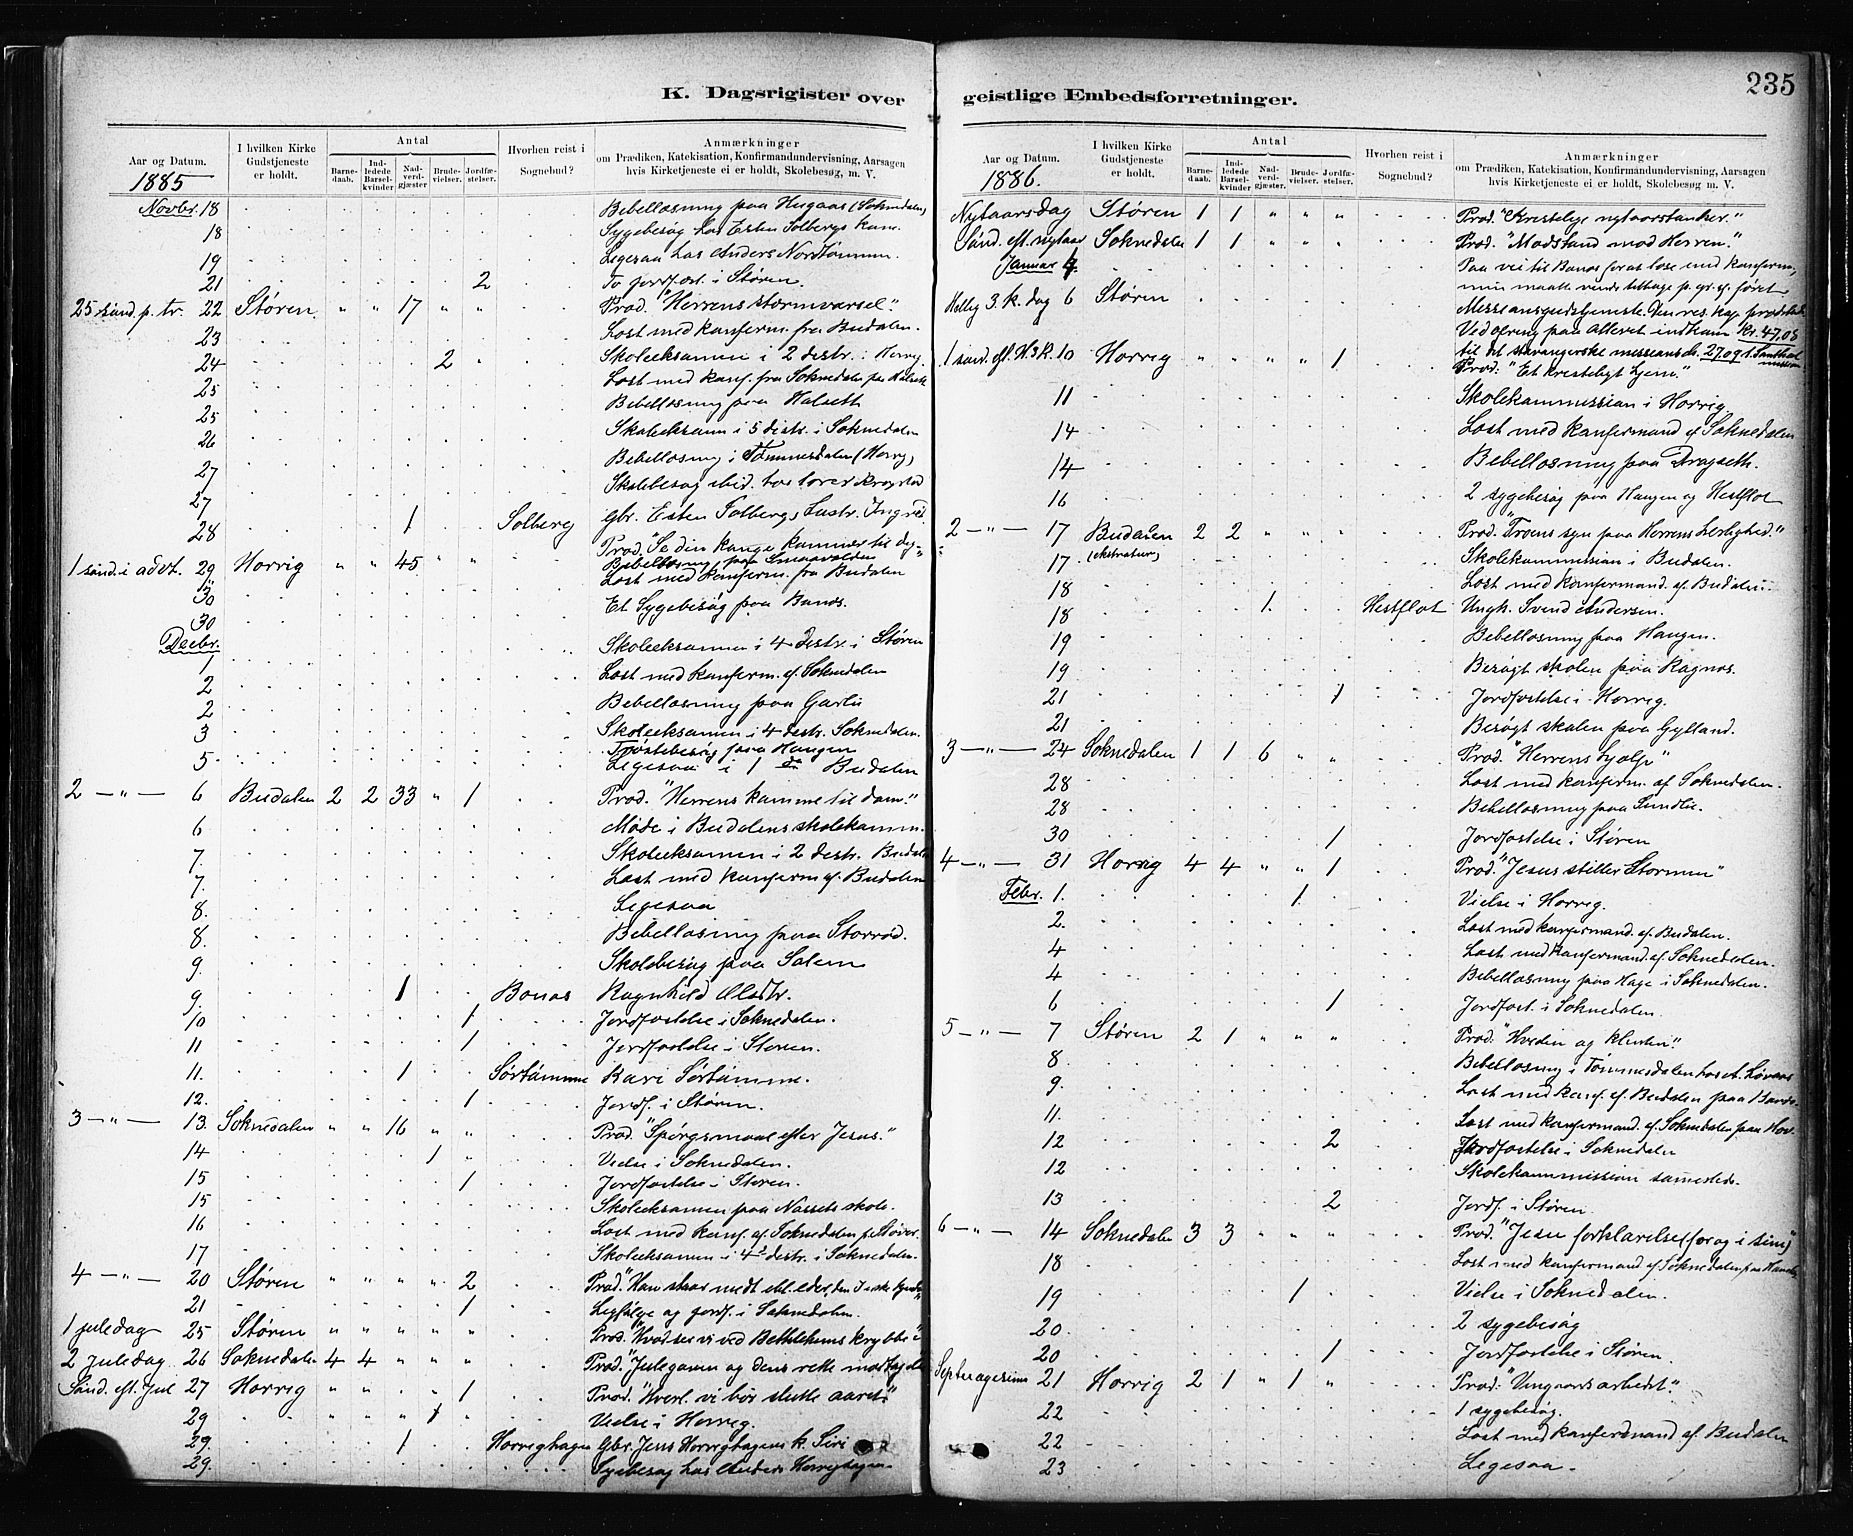 K. Dagsrigister over
Aar og Datum. 1885
I hvilken Kirke Gudstjeneste er holdt.
Antal
Barnedaab.
Indledede Barselkvinder
Nadverdgjæster.
Brudevielser.
Jordfæstelser.
Hvorhen reist i Sognebud?
Anmærkninger om Prædiken, Katekisation, Konfirmandundervisning, Aarsagen hvis Kirketjeneste ei er holdt, Skolebesøg, m. V.
Novbr. 18 Bibellæsning paa Hugaas (Soknedalen)
18 Sygebesøg hos Esten Solbergs kone.
19 Ligesaa hos Anders Nordtømme.
21 2 To jordfæst. i Støren.
25 sünd. p. tr. 22 Støren. " " 17 " " Præd. "Herrens stormvarsel".
23 Læst med konfirm. fra Budalen.
24 2 " Skoleeksamen i 2 distr. i Horrig
25 Læst med konf. fra Soknedalen paa Halseth
25 Bibellæsning paa Halseth
26 Skoleeksam i 5 distr. i Soknedalen
27 Bibellæsning i Tømmesdalen (Horrig)
27 Skolebesøg ibid. hos lærer Krogstad
28 1 Solberg Gbr. Esten Solbergs Ingrid
1 sönd. i advt. 29 Horrig " " 45 " " Præd. "Se din konge kommer til dig"
Bibellæsning paa Smaavolden
30 Læst med konfirm. fra Budalen
30 Et Sygebesøg paa Bonæs.
Decbr.
1 Skoleeksamen i 4 distr. i Støren
2 Læst med konfirm. af Soknedalen
2 Bibellæsning paa Garli
3 Skoleeksamen i 4 distr. Soknedalen.
Trøstebesøg paa Haugen
5 Ligesaa i 1 Budalen
2 — " — 6 Budalen 2 2 33 " 1 Præd. "Herrens komme til dom."
6 Møde i Budalens skolekomm.
7. Skoleeksamen i 2 distr. Budalen
7. Læst med konfirm af Budalen
8. Ligesaa
8. Bibellæsning paa Storrød.
9. Skolebesøg paa Solem
9. 1 Bonæs Ragnhild Olsdtr.
10 1 Jordfæstelse i Soknedalen.
11 1 Jordfæstelse i Støren.
11. 1 Sørtømme Kari Sørtømme.
12. 1 Jordf. i Støren.
3 — " — 13. Soknedalen " " 16 " " Præd. "Spørgsmaal efter Jesus."
14 1 " Vielse i Soknedalen.
15 1 Jordfæstelse i Støren.
15 Skoleeksamen paa skole.
16 Læst med konf. af Soknedalen p. Støren
17 Skoleeksamen i 4de distr. i Soknedalen.
4 — " — 20 Støren " " " " 2 Præd. "Han staar midt iblt. eder, den I ikke kjende"
21 1 Ligfølge og jordf. i Soknedalen.
1 juledag 25 Støren " " " " " Præd. "Hvad ser vi ved Bethlehems krybbe"
2 juledag 26 Soknedalen 4 4 " " " Præd. "Julegaven og dens rette modtagelse
Sønd. eft. jul 27 Horrig " " " 1 Præd. "Hvorl. vi bør slutte aaret."
29 " " " 1 " Vielse i Horrig.
29. 1 Horrighagen Gbr. Jens Horrighagens k. Siri
29. Sygebesøg hos Anders Horrighagen
235
geistlige Embedsforretninger.
Aar og Datum. 1886.
I hvilken Kirke Gudstjeneste er holdt.
Antal
Barnedaab.
Indledede Barselkvinder
Nadverdgjæster.
Brudevielser.
Jordfæstelser.
Hvorhen reist i Sognebud?
Anmærkninger om Prædiken, Katekisation, Konfirmandundervisning, Aarsagen hvis Kirketjeneste ei er holdt, Skolebesøg, m. V.
Nytaarsdag Støren 1 1 " " " Præd. "Kristelige nytaarstanker."
Sönd. eft. nytaar Soknedalen 1 1 " " " Præd. "Modstand mod Herren."
Januar 4. Paa vei til Bonæs for at læse med konfirm,
men maatte vende tilbage p. gr. af føret
Hellig 3. k. dag 6 Støren Missionsgudstjeneste. Den res. kap. prædikede
Ved ofring paa alteret indkom kr. 47,08
til det stavangerske missionssk. 27,09 t. Santhal missionen
1 sönd. eft. H3K. 10 Horrig " " " " 1 Præd: "Et kristeligt hjem."
11 Skolekommission i Horrig
14 Læst med konfirmand af Soknedalen
14 Bibellæsning paa Dragseth.
16 2 sygebesøg paa Haugen og Hestflot
2 — " — 17 Budalen 2 2 " " " Præd. "Troens syn paa Herrens herlighed."
17. (ekstratur) Skolekommission i Budalen.
18 Læst med konfirmand. af Budalen.
18 1. Hestflot Ungk. Svend Andersen.
19 Bibellæsning paa Haugen.
19 Besøgt skolen paa Ragnos.
21 1 Jordfæstelse i Horrig.
21 Besøgt skolen paa Gylland.
3 — " — 24 Soknedalen 1 1 6 " " Præd. "Herrens hjælp"
28 Læst med konfirm. af Soknedalen.
28 Bibellæsning paa Sundlie.
30 1 Jordfæstelse i Støren
4 — " — 31 Horrig 4 4 " " 1 Præd. "Jesus stiller Stormen"
Febr. 1. 1 Vielse i Horrig.
2. Læst med konfirmand. af. Budalen.
4 Læst med konfirmand. af Soknedalen.
4 Bibellæsning paa Hage i Soknedalen.
6 1 Jordfæst. i Soknedalen.
5 — " — 7 Støren 2 1 " " " Præd. "Hveden og klinten".
8 Bibellæsning i Tømmesdalen hos
9. Læst med konf. af Budalen paa Bonæs.
11. Læst med konfirmand. af Soknedalen paa Hov.
12 2 Jordfæstelse i Soknedalen
12 Skolekommission sammesteds.
13 2 Jordf. i Støren
6 — " — 14 Soknedalen 3 3 " " " Præd. "Jesu forklarelse (for og i sine)"
18 Læst med konfirmand af Soknedalen paa
19 1 Vielse i Soknedalen.
20 2 sygebesøg
20 1 Jordfæstelse i Støren.
Septuagesima 21 Horrig 2 1 " 1 " Præd: "Vingaardsarbeidet".
22 1 sygebesøg.
22 Læst med konfirmand af Budalen
23 Ligesaa.